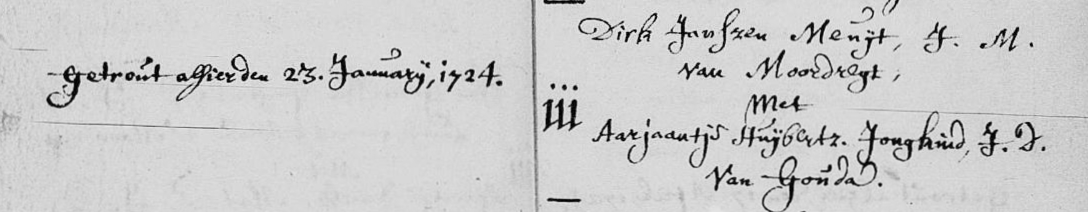 Getrout alhier den 23. January, 1724.
Dirk Janszen Meuyt, J. M.
van Moordregt,
iii
Met
Aarjaantje Huybertz. Jongkind, J. D.
van Gouda.